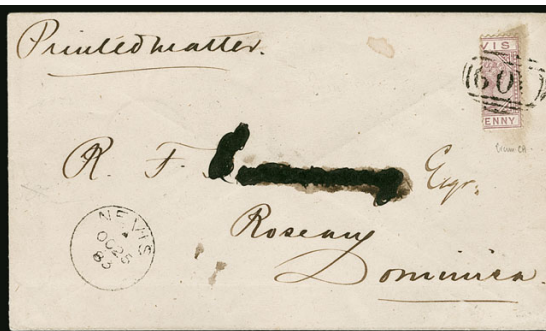 Printed matter.
VIS
A09
ENNY
R. F. Esqr.
NEVIS
OC 25
83
Roseau
Dominica.